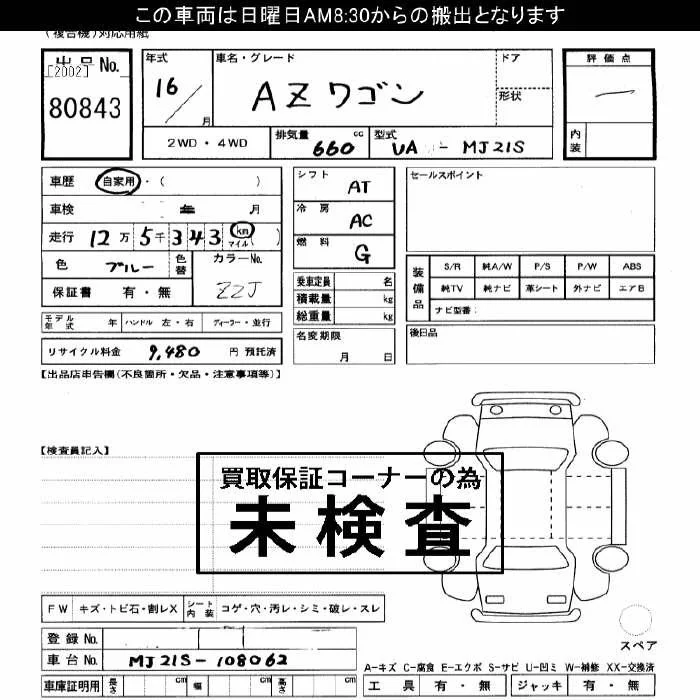 この車両は日曜日AM8:30からの搬出となります
(複合機)対応用紙
出品 No.
[2002]
80843
年式 16 / 月
車名・グレード AZワゴン
ドア
形状
評価点
内装
2WD・4WD
排気量 660 cc
型式 UA - MJ21S
車歴 自家用・( )
車検 年 月
走行 12万5千343 km マイル ( )
色 ブルー 色替 カラーNo. ZZJ
保証書 有・無
モデル年式 年 ハンドル 左・右 ディーラー・並行
リサイクル料金 9,480 円 預託済
シフト AT
冷房 AC
燃料 G
乗車定員 名
積載量 kg
総重量 kg
名変期限
月 日
セールスポイント
装備品
S/R 純A/W P/S P/W ABS
純TV 純ナビ 革シート 外ナビ エアB
ナビ型番:
後日品
【出品店申告欄(不良箇所・欠品・注意事項等)】
【検査員記入】
買取保証コーナーの為
未検査
FW キズ・トビ石・割レX シート内装 コゲ・穴・汚レ・シミ・破レ・スレ
登録 No.
車台 No. MJ21S-108062
車庫証明用 長さ cm 幅 cm 高さ cm
スペア
A-キズ C-腐食 E-エクボ S-サビ U-凹ミ W-補修 XX-交換済
工具 有・無 ジャッキ 有・無